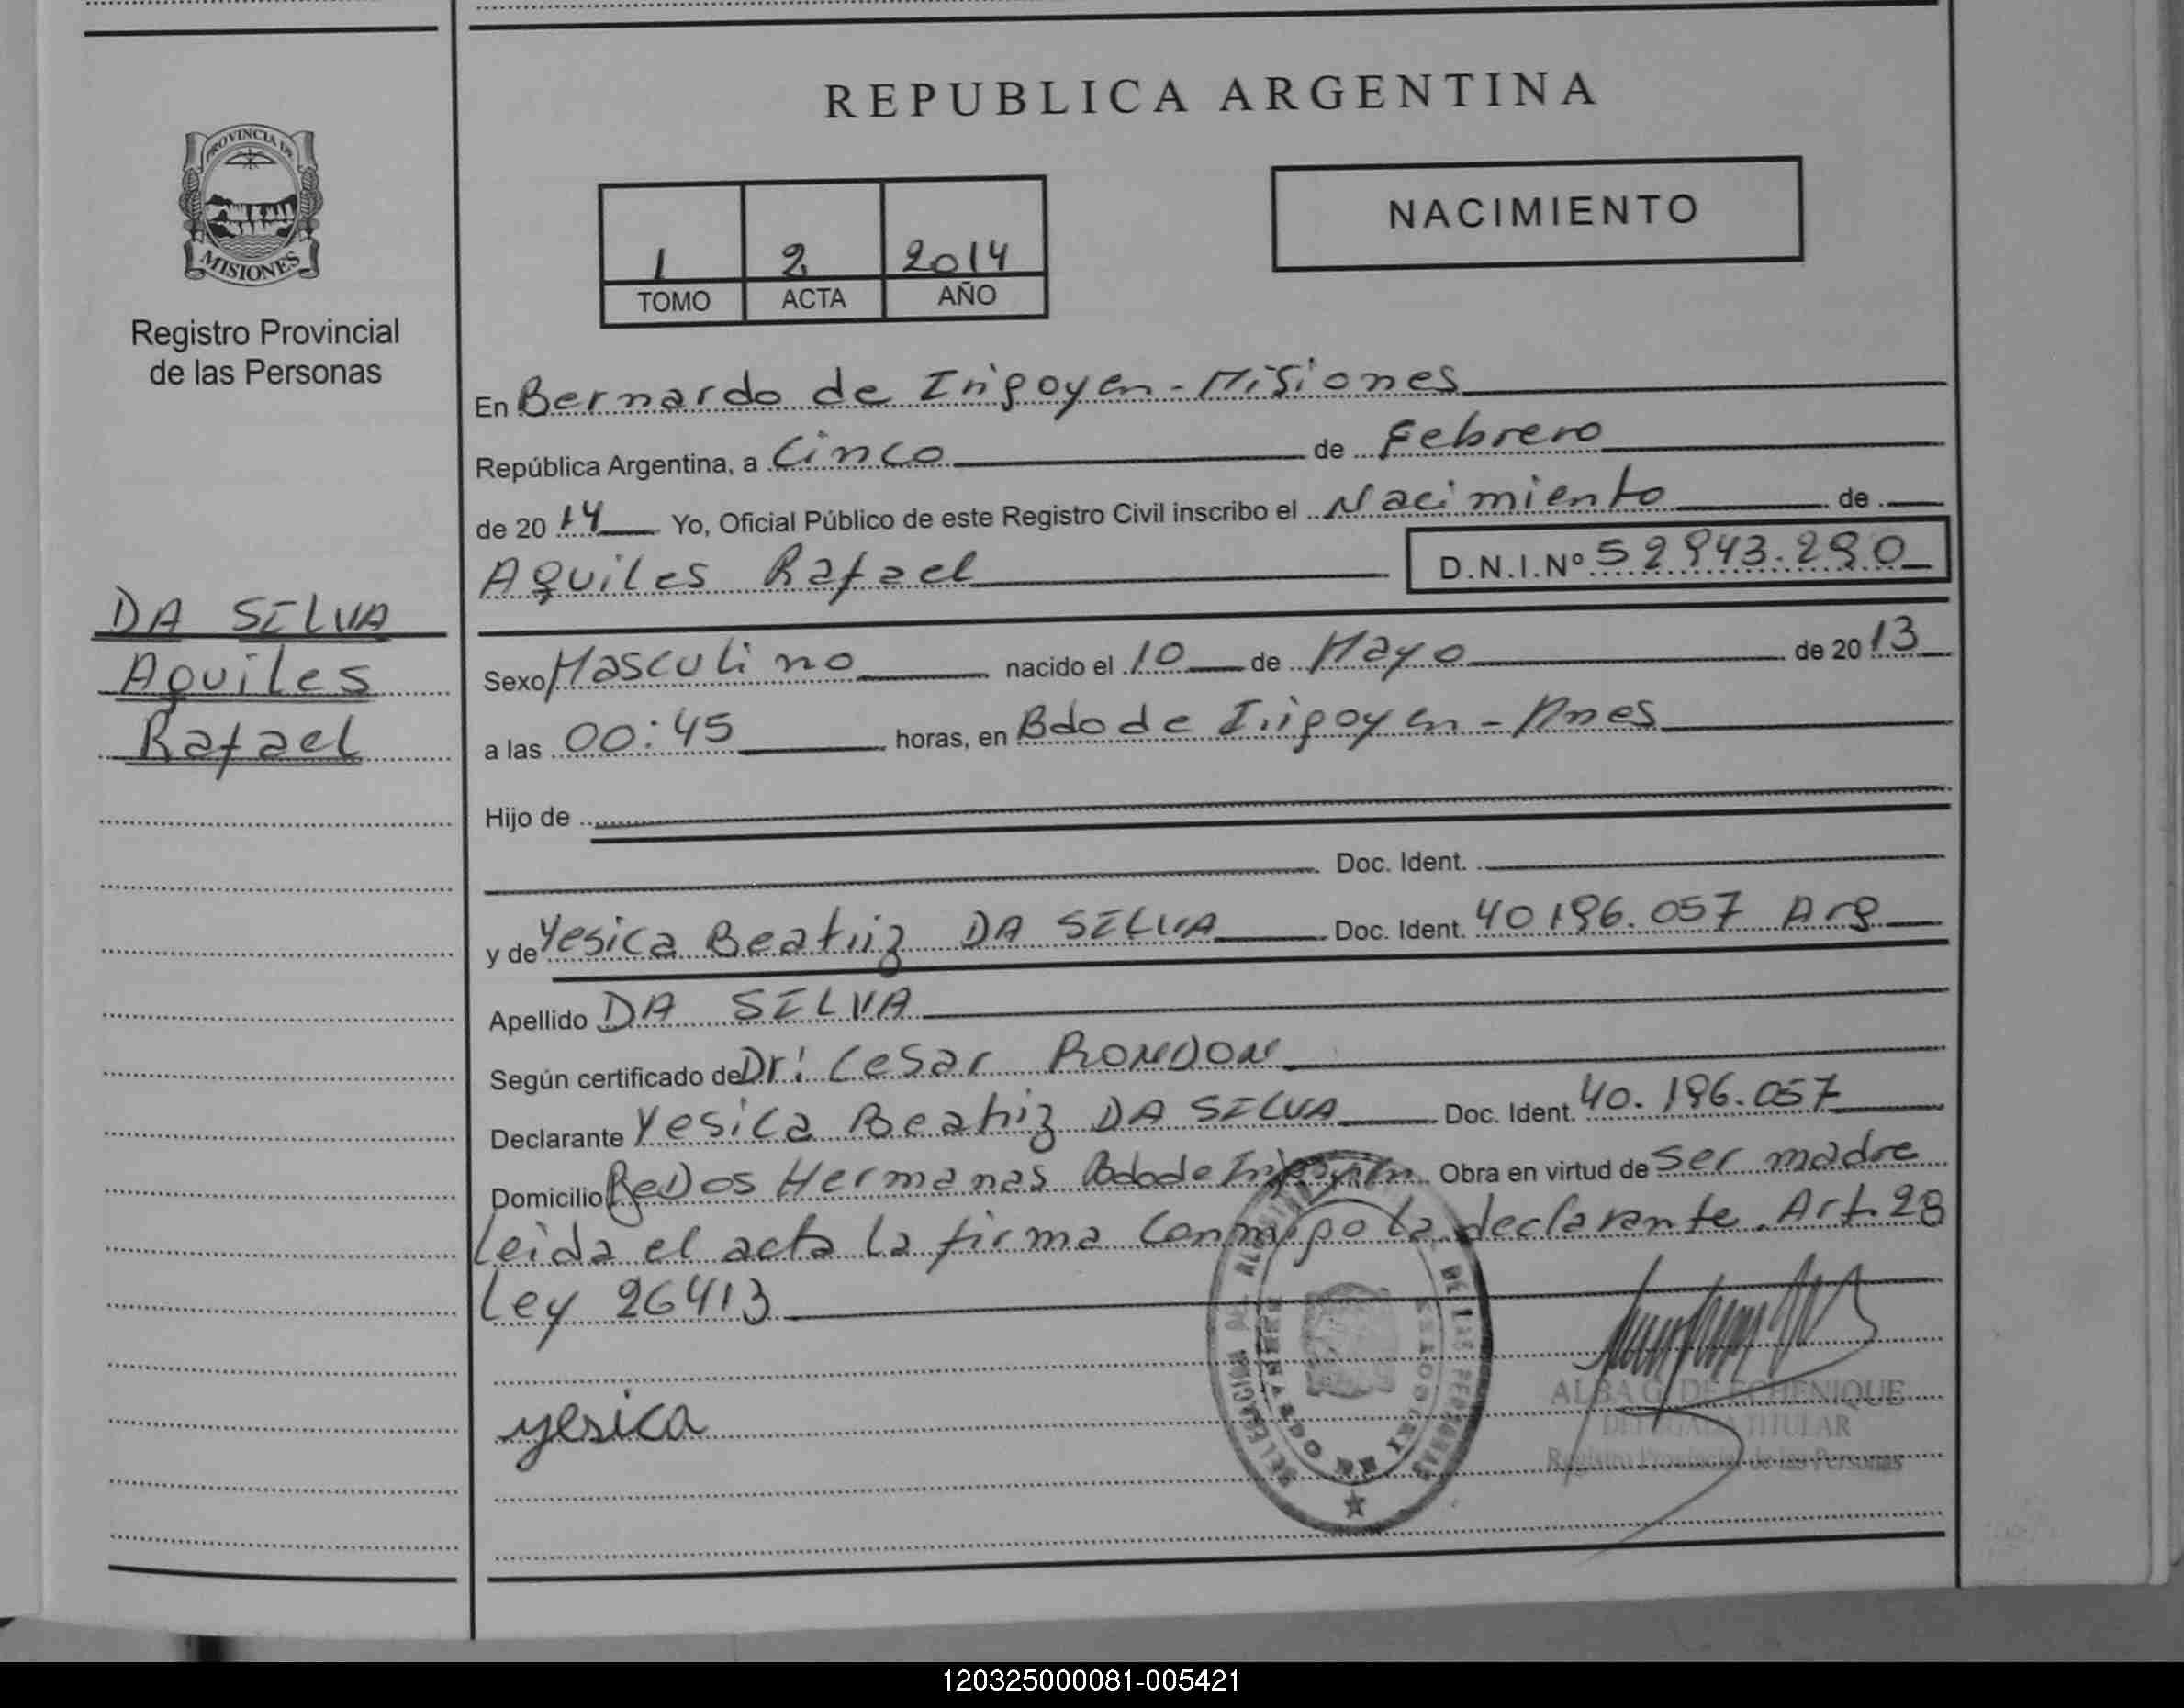 REPUBLICA ARGENTINA
PROVINCIA DE
MISIONES
Registro Provincial
de las Personas
NACIMIENTO
1 2 2014
TOMO ACTA AÑO
En Bernardo de Irigoyen - Misiones
República Argentina, a Cinco de Febrero
de 2014 Yo, Oficial Público de este Registro Civil inscribo el Nacimiento de
Aquiles Rafael D.N.I.Nº 52943.290
DA SILVA
Aquiles
Rafael
Sexo Masculino nacido el 10 de Mayo de 2013
a las 00:45 horas, en Bdo de Irigoyen - Mnes
Hijo de
Doc. Ident.
y de Yesica Beatriz DA SILVA Doc. Ident. 40196.057 Arg
Apellido DA SILVA
Según certificado de Dr: Cesar RONDON
Declarante Yesica Beatriz DA SILVA Doc. Ident. 40.196.057
Domicilio Dos Hermanas Bdo de Irigoyen Obra en virtud de ser madre
Leida el acta la firma conmigo la declarante. Art 28
Ley 26413
yesica
ALBA G. DE ECHENIQUE
DELEGADA TITULAR
Registro Provincial de las Personas
120325000081-005421